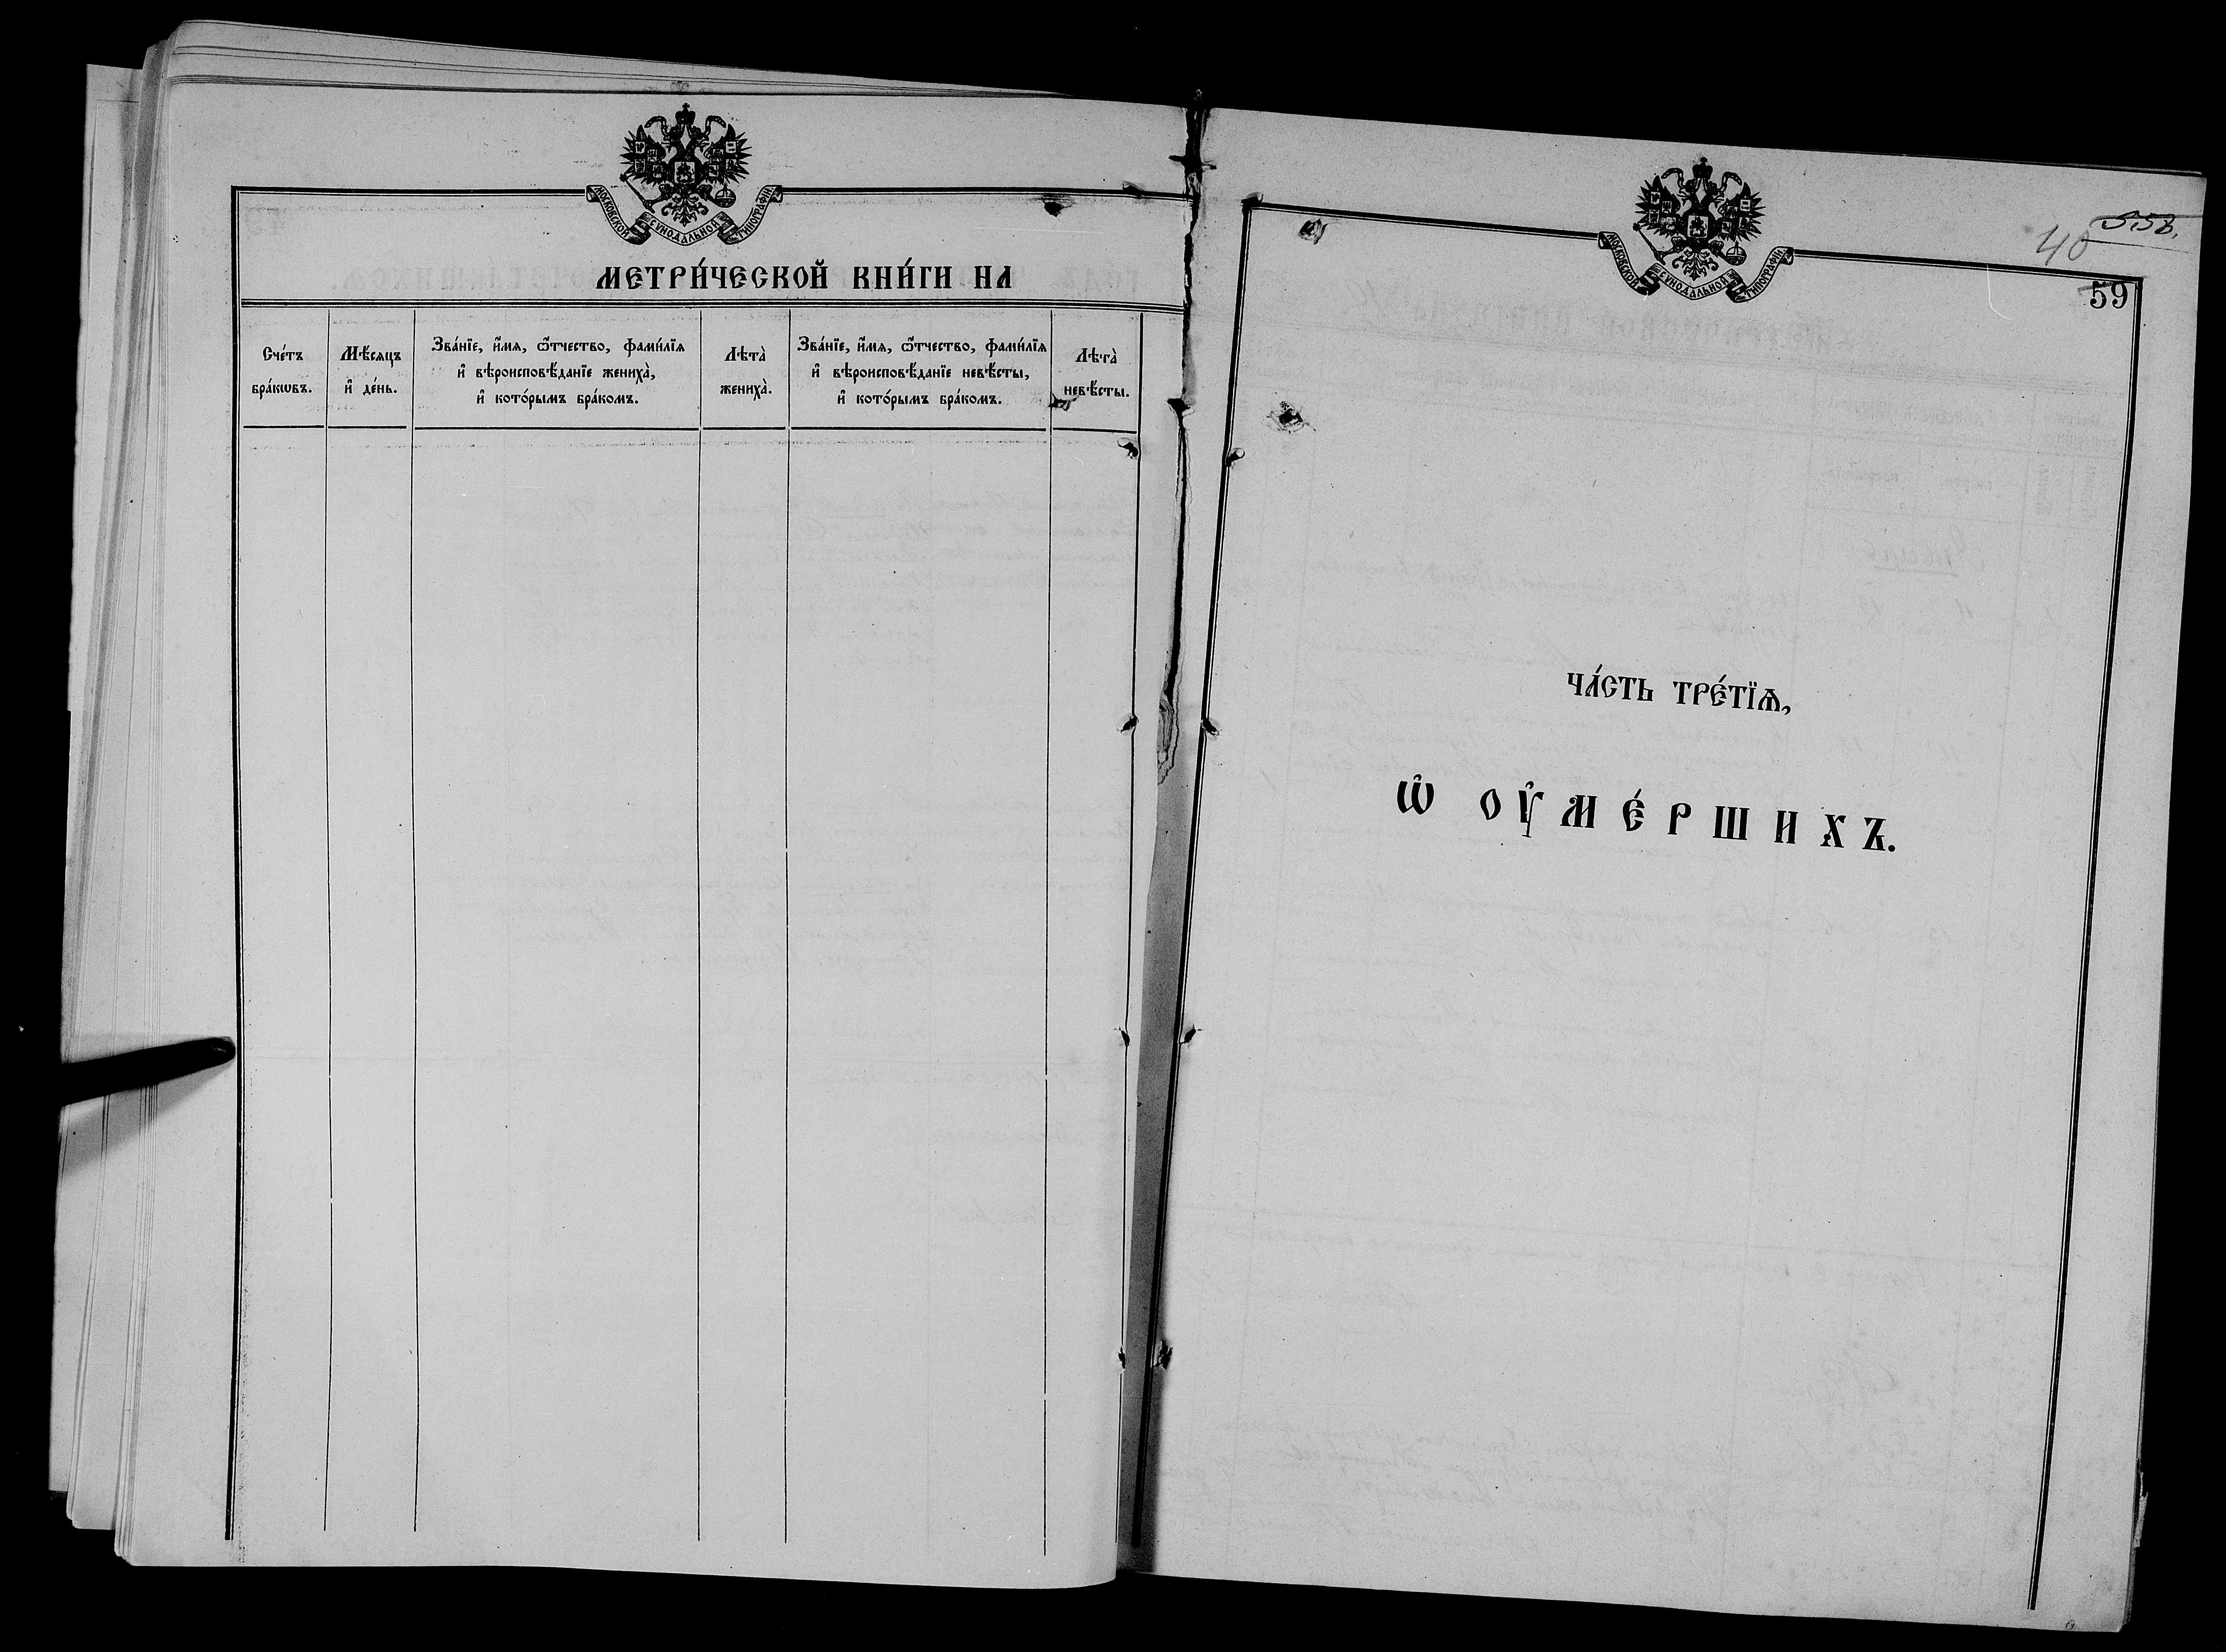 МОСКОВСКОЙ СУНОДАЛЬНОЙ ТИПОГРАФІИ
МЕТРИ́ЧЕСКОЙ КНИ́ГИ НА
Сче́тъ бра́кѡвъ.
Мѣ́сяцъ и҆ де́нь.
Зва́нїе, и҆́мя, ѻ҆́тчество, фами́лїя
и҆ вѣроисповѣ́данїе жениха̀,
и҆ кото́рымъ бра́комъ.
Лѣта̀ жениха̀.
Зва́нїе, и҆́мя, ѻ҆́тчество, фами́лїя
и҆ вѣроисповѣ́данїе невѣ́сты,
и҆ кото́рымъ бра́комъ.
Лѣта̀ невѣ́сты.
МОСКОВСКОЙ СУНОДАЛЬНОЙ ТИПОГРАФІИ
40
59
ЧА́СТЬ ТРЕ́ТЇѦ,
Ѡ҆ ОУ҆МЕ́РШИХЪ.